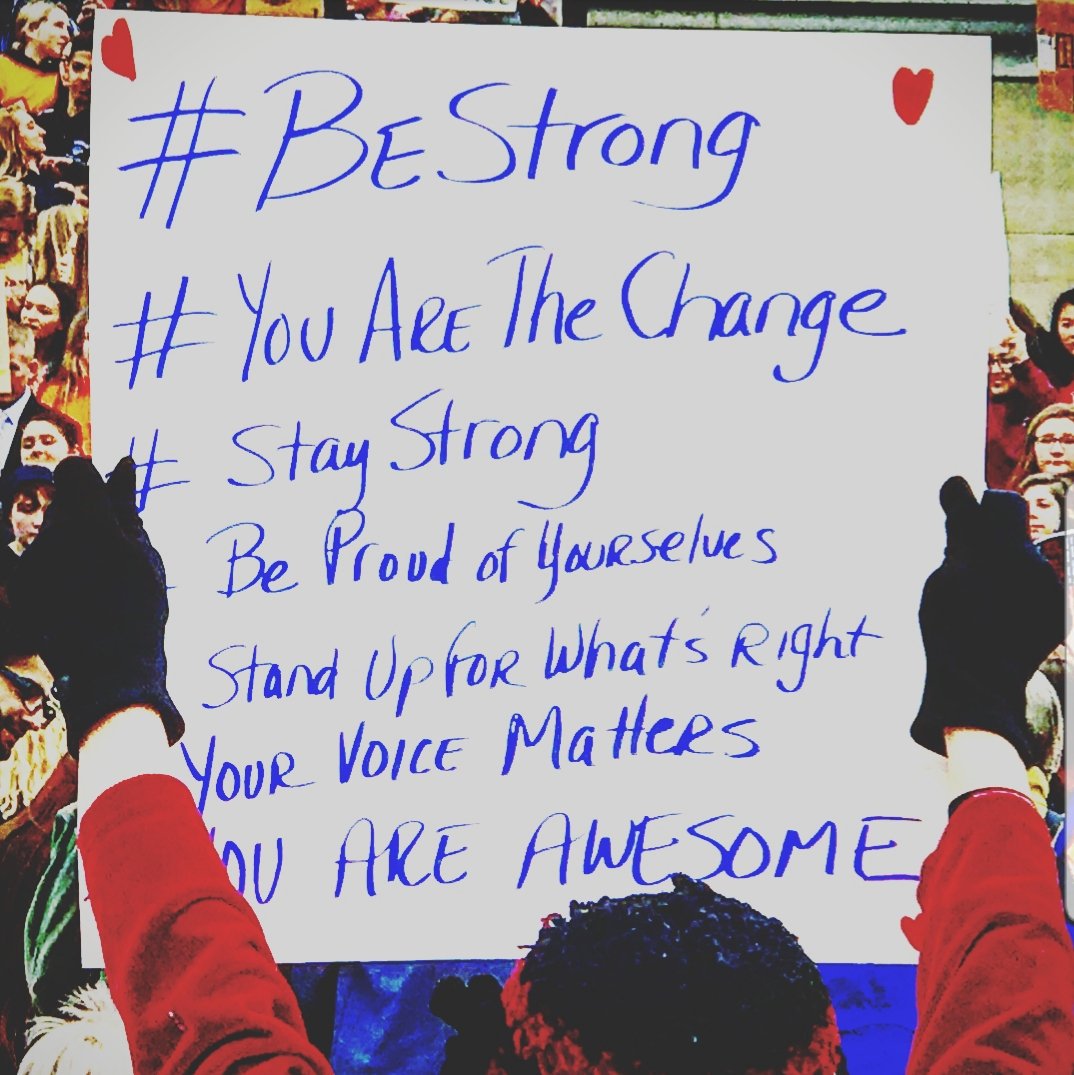 #BE Strong
#YOU ARE The Change
# Stay Strong
Be Proud of YOURSelves
Stand Up FOR What's Right
YOUR VOICE MatteRS
YOU ARE AWESOME